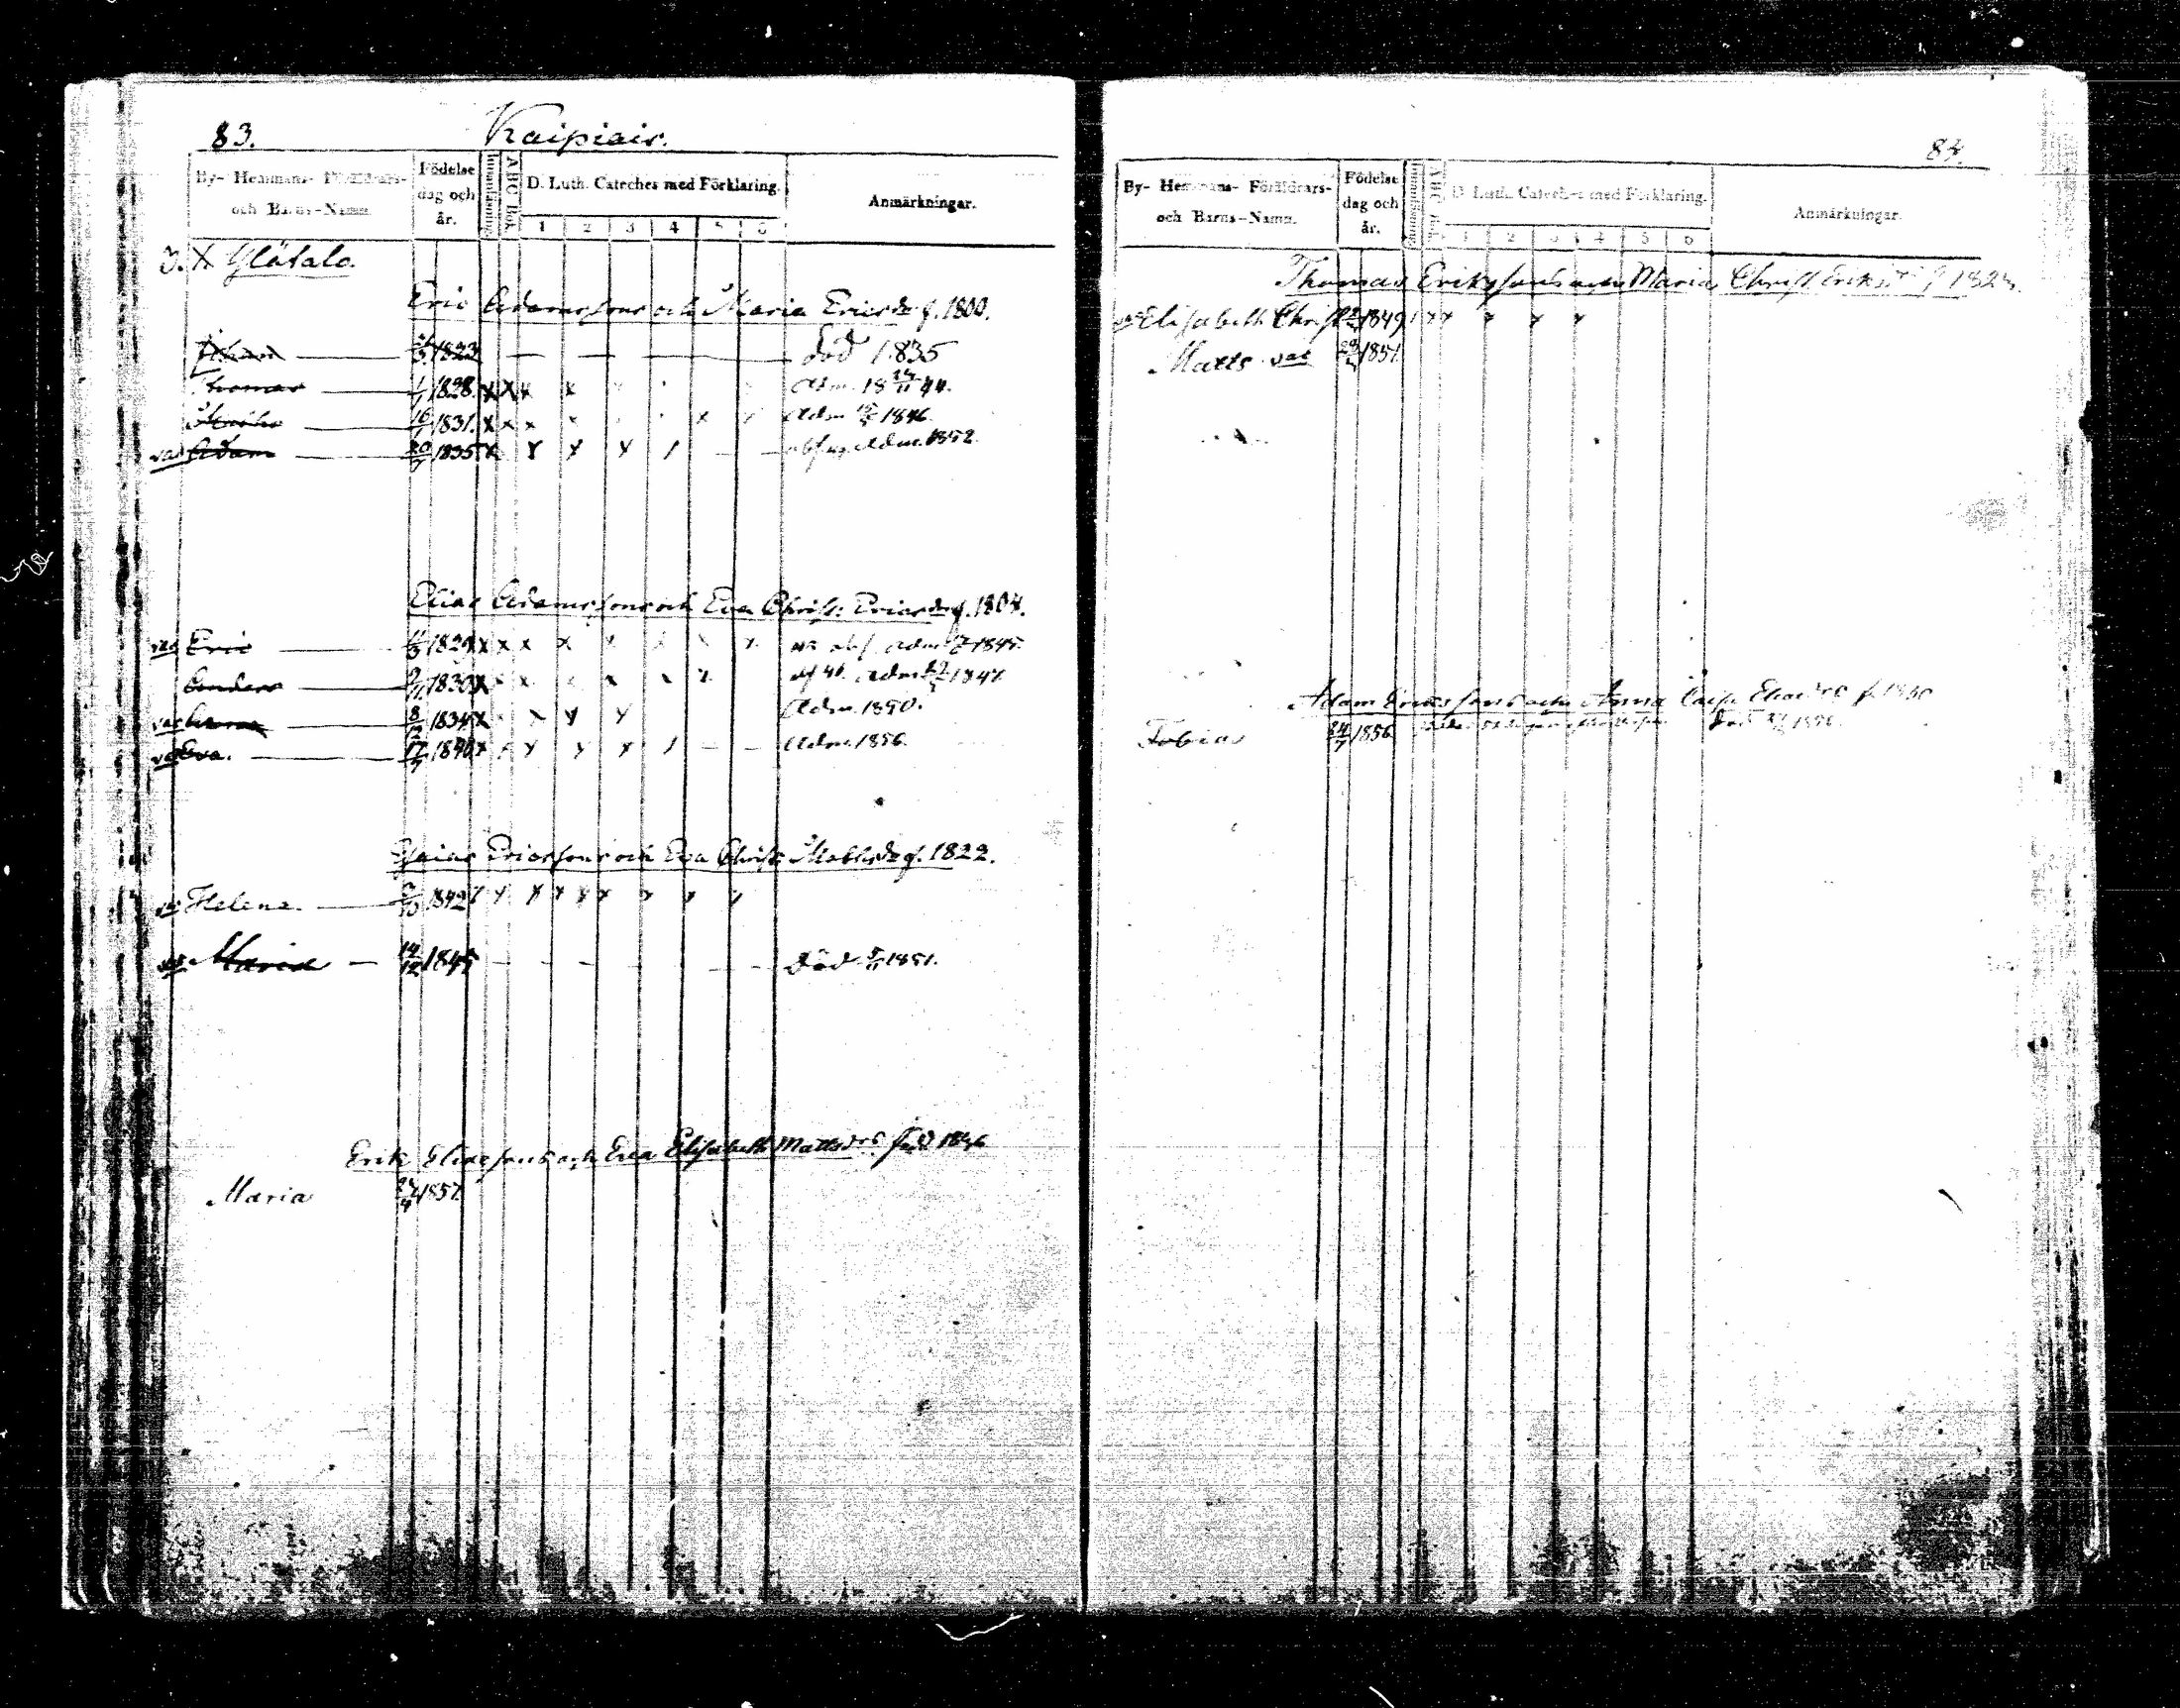 83.
Kaipiais.
By- Hemmans- Föräldrars- och Barns-Namn.
Födelse dag och år.
Innanläsning
ABC Bok
D. Luth. Cateches med Förklaring.
1 2 3 4 5 6
Anmärkningar.
Ylätalo.
Eric Adamssons och Maria Ericsdr f. 1800.
Johan 1823 — — — död 1835
Thomas 1/1 1828 x x x x Adm. 18 44.
16/1 1831. x x x x x Adm 1846.
vac Adam 20/7 1835 x x x x / — — Adm. 1852.
Elias Adamssons och Eva Christ: Ericsdr f. 1804.
vac Eric 1829 x x x x x x x x abs. adm 1845.
Anders 9/11 1830 x x x x x x adm 1847
vac Anna 8/12 1834 x x x x Adm. 1850.
vac Eva. 17/7 1840 x x x x x / — — Adm. 1856.
Esaias Ericssons och Eva Christ: Mattsdr f. 1822.
vac Helena. 1842 x x x x x x x x x
vac Maria — 14/12 1845 — — — — — — död 5/11 1851.
Erik Eliassons och Eva Elisabeth Mattsdr född
Maria 1857
84.
By- Hemmans- Föräldrars- och Barns-Namn.
Födelse dag och år.
ABC
D. Luth. Cateches med Förklaring.
1 2 3 4 5 6
Anmärkningar.
Thomas Erikssons och Maria Christ. Eriksdr f. 182
vac Elisabeth Christ 1849 x x x x x
Matts vac 1851
Adam Erikssons och Anna Caisa Eliaedr f.
Tobias 24/7 1856 död 1856.